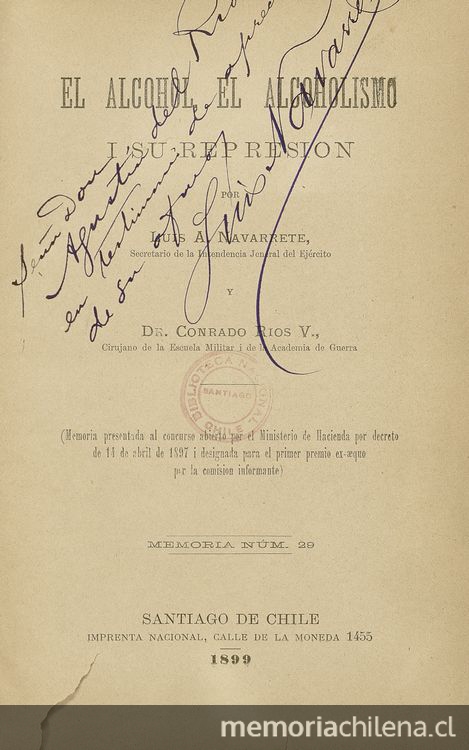 EL ALCOHOL, EL ALCOHOLISMO
I SU REPRESION
POR
LUIS A. NAVARRETE,
Secretario de la Intendencia Jeneral del Ejército
Y
DR. CONRADO RIOS V.,
Cirujano de la Escuela Militar i de la Academia de Guerra
Señor Don
Agustin del Rio
en testimonio de
de su
Luis Navarrete
BIBLIOTECA NACIONAL
SANTIAGO
CHILE
(Memoria presentada al concurso abierto por el Ministerio de Hacienda por decreto
de 14 de abril de 1897 i designada para el primer premio ex-æquo
por la comision informante)
MEMORIA NÚM. 29
SANTIAGO DE CHILE
IMPRENTA NACIONAL, CALLE DE LA MONEDA 1455
1899
memoriachilena.cl